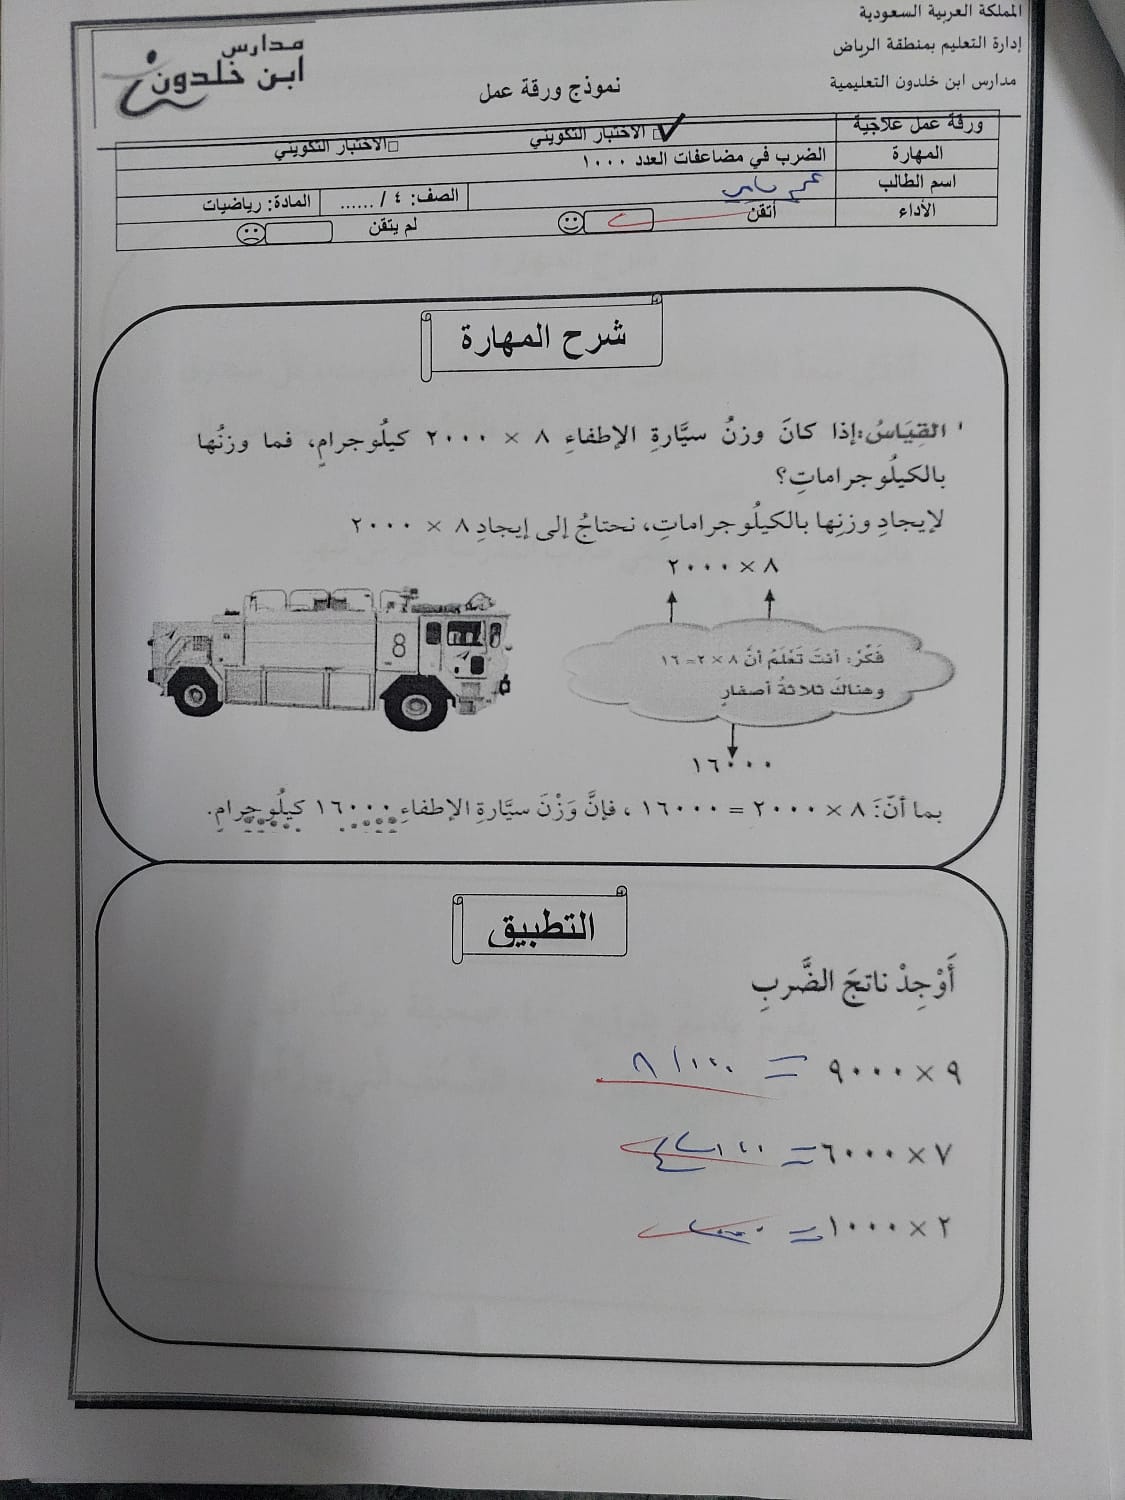 المملكة العربية السعودية
إدارة التعليم بمنطقة الرياض
مدارس ابن خلدون التعليمية
مدارس
ابن خلدون
نموذج ورقة عمل
ورقة عمل علاجية □ الاختبار التكويني □ الاختبار التكويني
المهارة الضرب في مضاعفات العدد ١٠٠٠
اسم الطالب الصف: ٤ / ...... المادة: رياضيات
الأداء أتقن لم يتقن
شرح المهارة
القِيَاسُ: إذا كانَ وزنُ سيَّارةِ الإطفاءِ ٨ × ٢٠٠٠ كيلُوجرامٍ، فما وزنُها
بالكيلُوجراماتِ؟
لإيجادِ وزنِها بالكيلُوجراماتِ، نحتاجُ إلى إيجادِ ٨ × ٢٠٠٠
٨ × ٢٠٠٠
8
فَكِّرْ: أنتَ تَعْلَمُ أنَّ ٨ × ٢ = ١٦
وهناكَ ثلاثةُ أصفارٍ
١٦٠٠٠
بما أنَّ: ٨ × ٢٠٠٠ = ١٦٠٠٠ ، فإنَّ وَزْنَ سيَّارةِ الإطفاءِ ١٦٠٠٠ كيلُوجرامٍ.
التطبيق
أَوْجِدْ ناتجَ الضَّربِ
٩ × ٩٠٠٠ = ٨١٠٠٠
٧ × ٦٠٠٠ = ٤٢٠٠٠
٢ × ١٠٠٠ = ٢٠٠٠